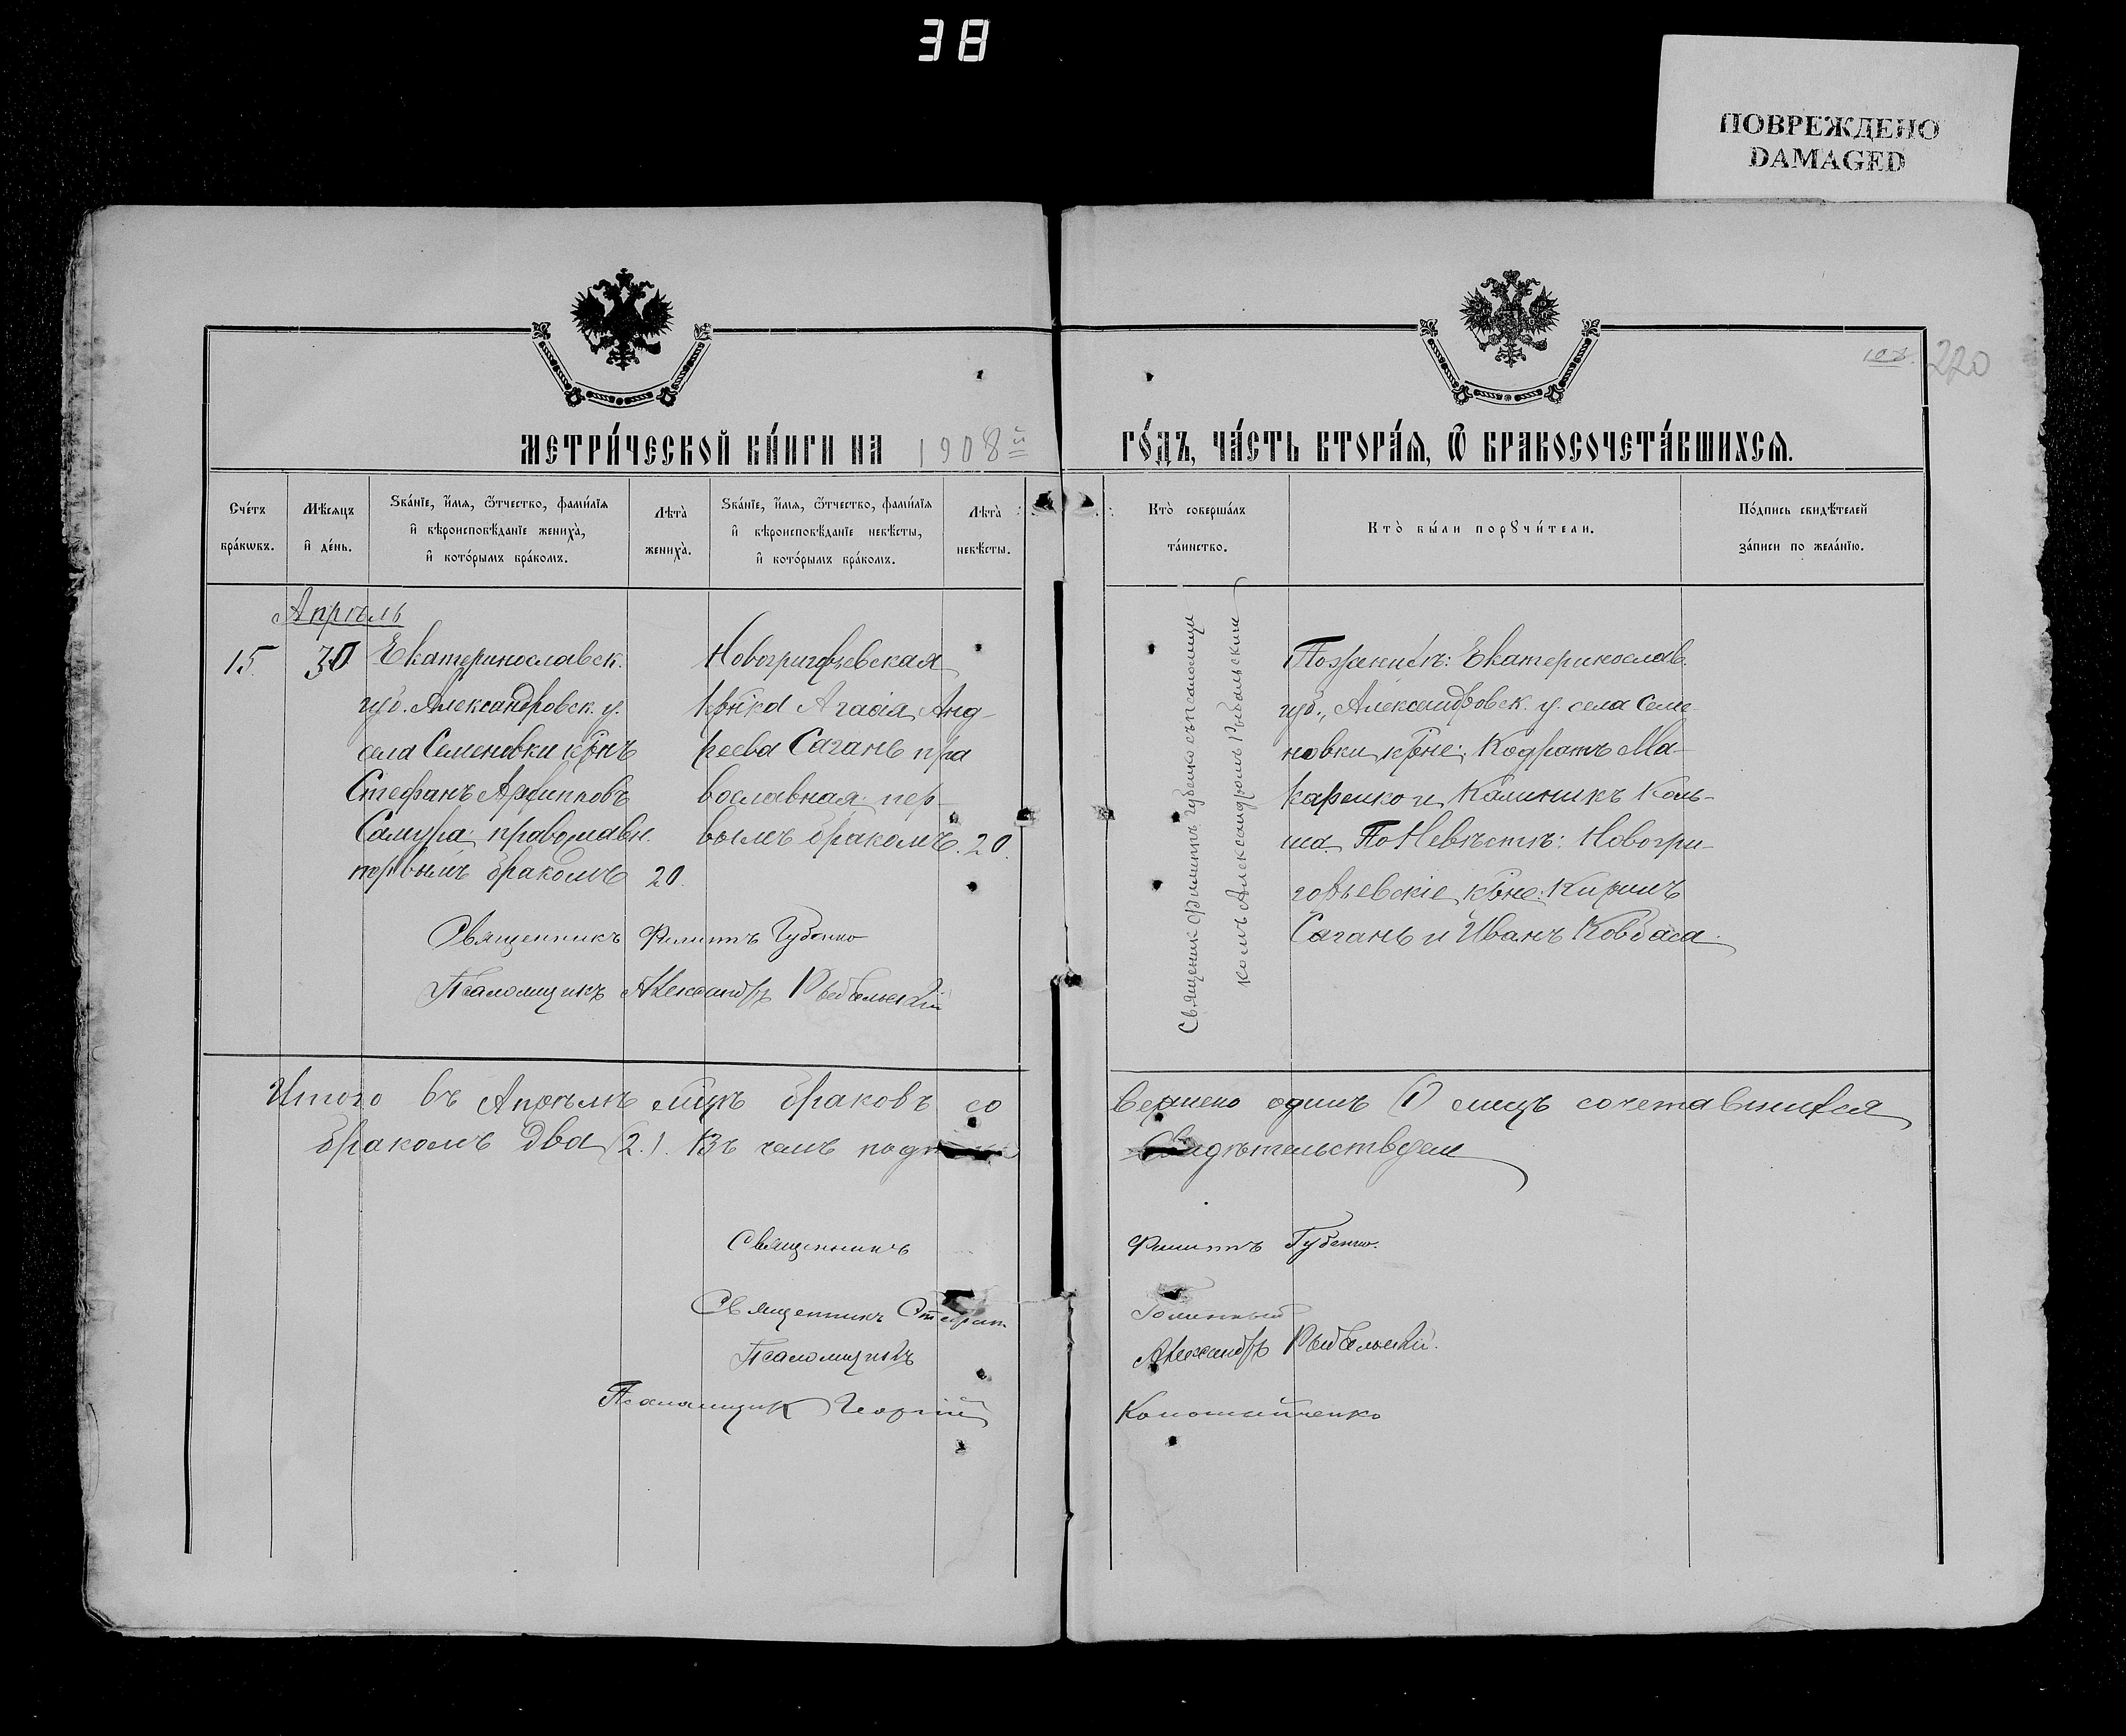 38
ПОВРЕЖДЕНО
DAMAGED
108.
220
МЕТРИ́ЧЕСКОЙ КНИ́ГИ НА 1908й
ГО́ДЪ, ЧА́СТЬ ВТОРА́Я, Ѿ БРАКОСОЧЕТА́ВШИХСЯ.
Сче́тъ
бра́кωвъ.
Мѣ́сяцъ
и҆ де́нь.
Ѕва́нїе, и҆́мя, ѻ҆́тчество, фами́лїя
и҆ вѣроисповѣ́данїе жениха̀,
и҆ кото́рымъ бра́комъ.
Лѣта̀
жениха̀.
Ѕва́нїе, и҆́мя, ѻ҆́тчество, фами́лїя
и҆ вѣроисповѣ́данїе невѣ́сты,
и҆ кото́рымъ бра́комъ.
Лѣта̀
невѣ́сты.
Кто̀ соверша́лъ
та́инство.
Кто̀ бы́ли порꙋчи́тели.
По́дпись свидѣ́телей
за́писи по жела́нїю.
Апрѣль
15.
30
Екатеринославск.
губ. Александровск. у.
села Семеновки крнъ
Стефанъ Архипповъ
Самура, православн.
первымъ бракомъ
20.
Новогригорьевская
крнка Агафія Анд-
реева Сагань пра
вославная пер-
вымъ бракомъ.
20.
Священникъ Филиппъ Губенко
Псаломщикъ Александръ Рыбальскій
Священник Филиппъ Губенко съ псаломщи
комъ Александромъ Рыбальскимъ
По женихѣ: Екатеринослав.
губ., Александровск. у. села Семе-
новки крне: Кодратъ Ма-
каренко и Калиникъ Коль-
ша. По Невѣстѣ: Новогри-
горьевскіе крне: Кирилъ
Сагань и Иванъ Ковбаса.
Итого въ Апрѣлѣ мцѣ браковъ со
вершено одинъ (1) лицъ сочетавшихся
бракомъ два (2.). Въ чемъ
свидѣтельствуем
Священникъ Филиппъ Губенко.
Священникъ Стефан
Псаломщикъ Александръ Рыбальскій.
Псаломщик Георгій Коломийченко